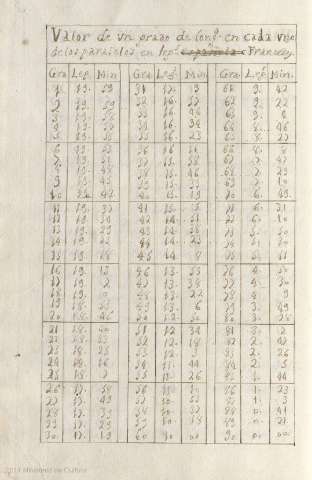 Valor de vn grado de long.ᵈ en cada vno
de los paralelos en leg.ˢ española Francesas
Gra Leg. Min. Gra Leg.ˢ Min. Gra Leg.ˢ Min.
1 19. 59 31 17. 9 61 9. 42
2 19. 59 32 16. 57 62 9. 22
3 19. 58 33 16. 46 63 9. 4
4 19. 57 34 16. 34 64 8. 46
5 19. 55 35 16. 23 65 8. 27
6 19. 53 36 16. 11 66 8. 8
7 19. 51 37 15. 58 67 7. 47
8 19. 48 38 15. 46 68 7. 29
9 19. 45 39 15. 69 7. 10
10 19. 42 40 15. 19 70 6. 49
11 19. 37 41 15. 71 6. 31
12 19. 42 14. 51 72 6. 10
13 19. 29 43 14. 73 5. 50
14 19. 23 44 14. 23 74 5. 30
15 19. 18 45 14. 8 75 5. 11
16 19. 13 46 13. 53 76 4. 50
17 19. 47 13. 38 77 4. 30
18 19. 48 13. 22 78 4. 9
19 18. 49 13. 6 79 3. 49
20 18. 46 50 80 3. 28
21 18. 40 51 12. 34 81 3.
22 18. 52 12. 18 82 2. 47
23 18. 25 53 12. 83 2. 26
24 18. 54 11. 44 84 2. 5
25 18. 55 11. 26 85 1. 44
26 17. 58 56 11. 86 1. 23
27 17. 49 57 10. 53 87 1. 3
28 17. 58 10. 37 88 0. 41
29 17. 29 59 10. 18 89 0. 21
30 17. 19 60 10. 90 0. 00
2011 Ministerio de Cultura